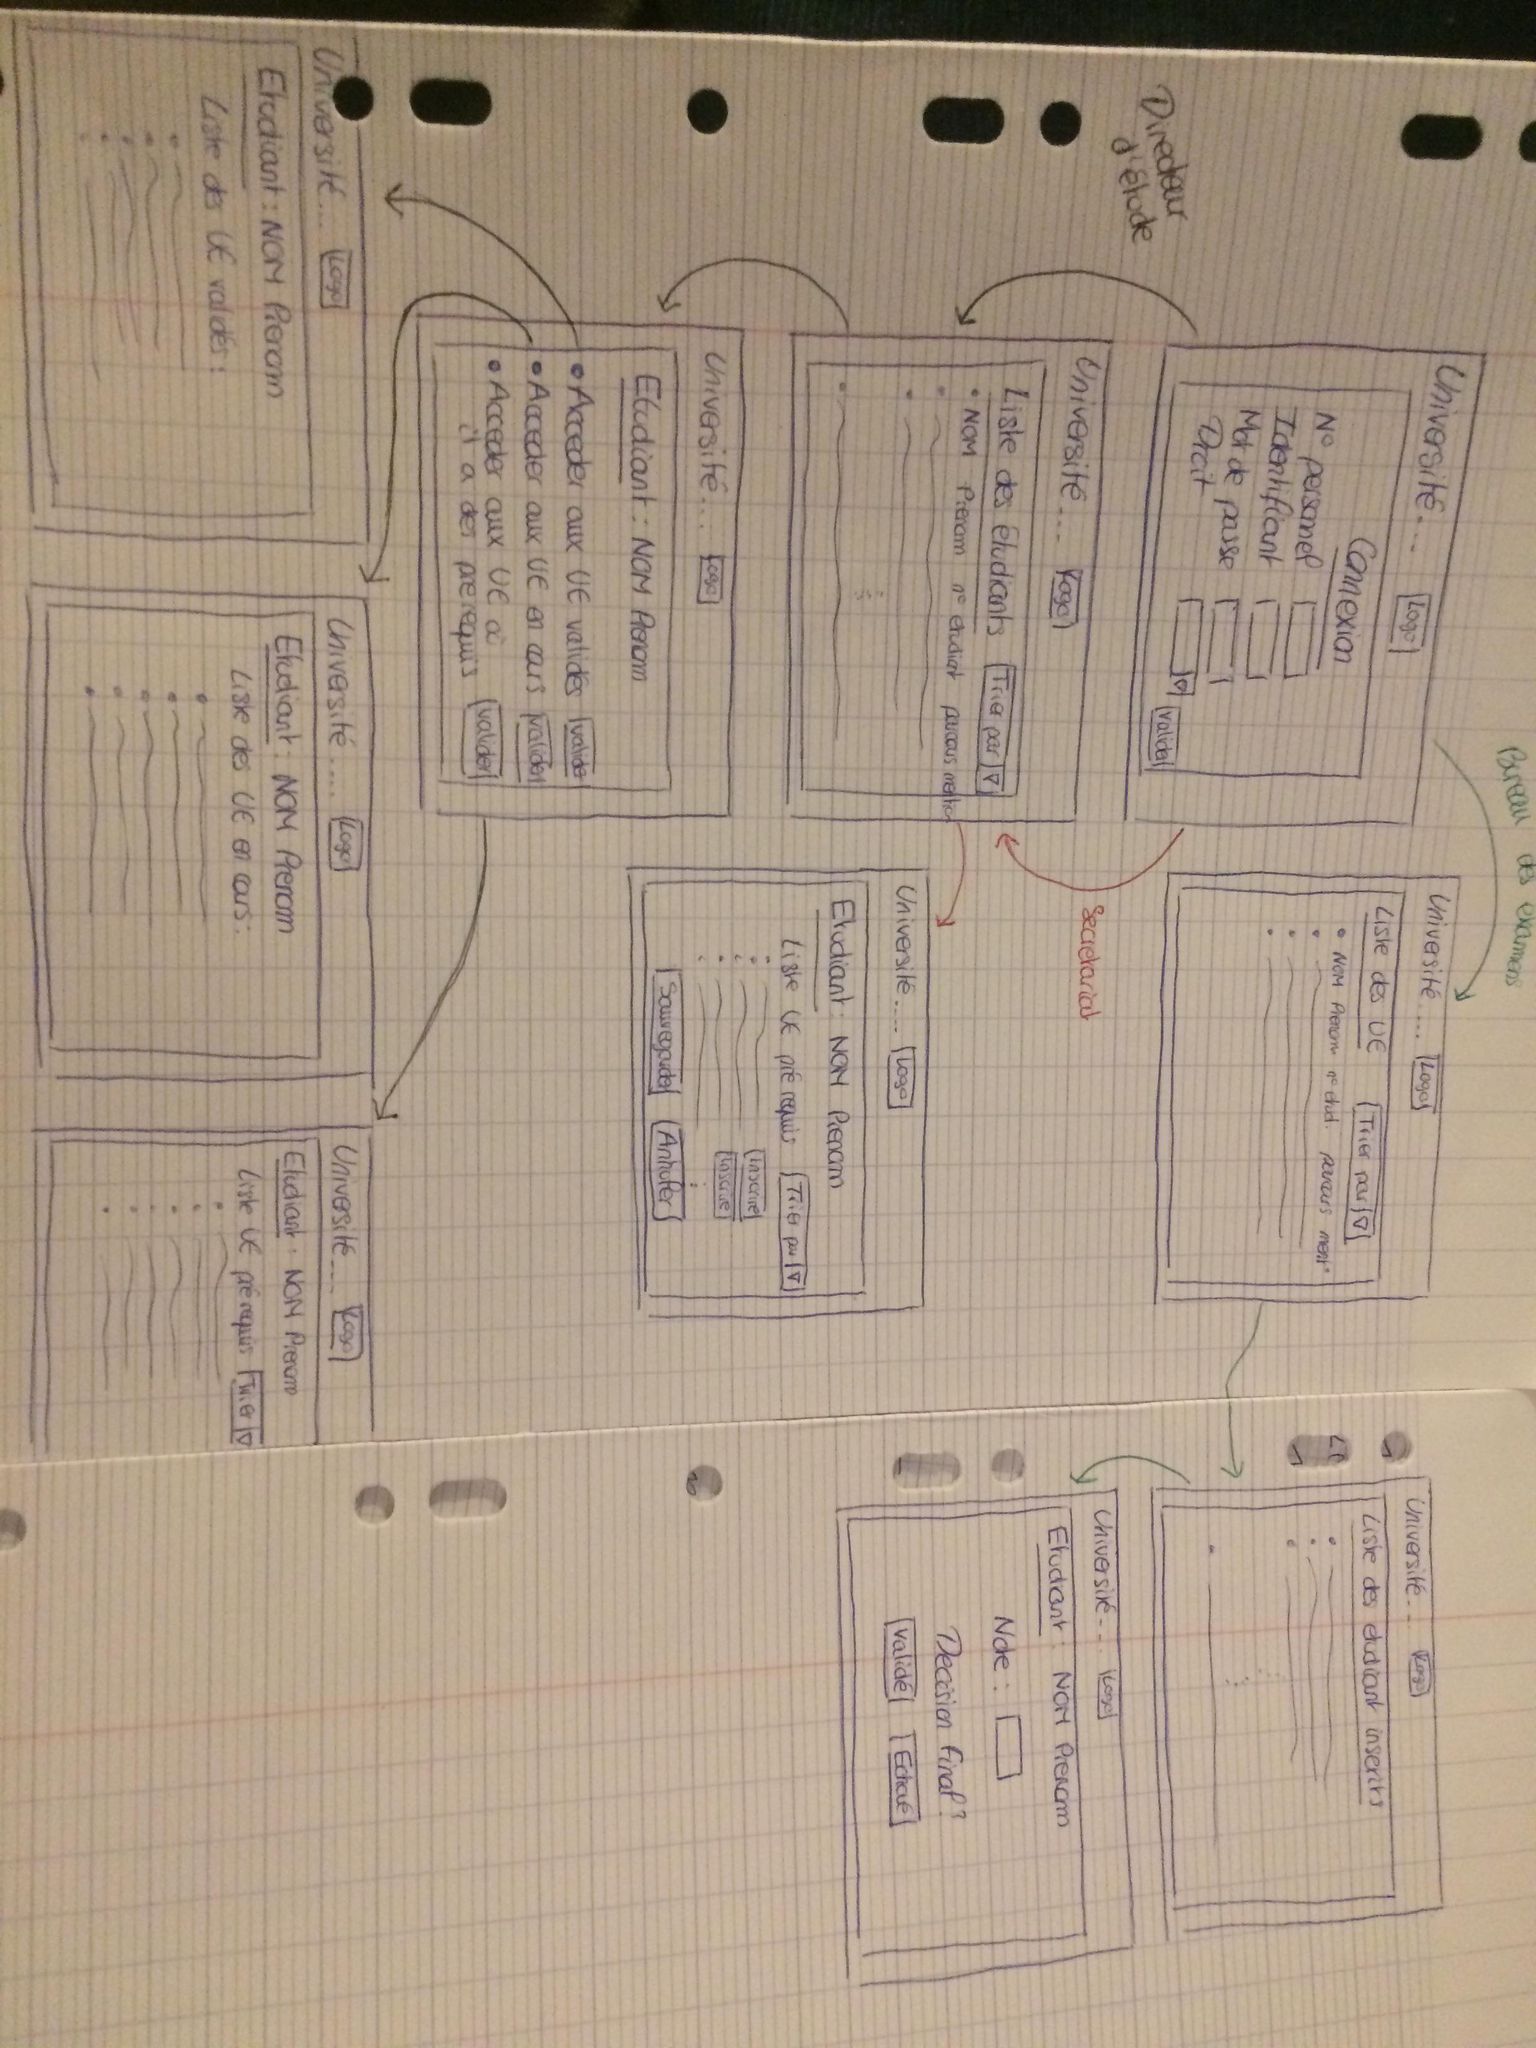 Bureau des examens
Université.... Logo
Connexion
N° personnel
Identifiant
Mot de passe
Droit
valider
Université.... Logo
Liste des UE Trier par
• NOM Prenom n° etud. parcours ment°
Université... Logo
Liste des etudiant inscrits
Directeur
d'étude
Secretariat
Université.... Logo
Liste des étudiants Trier par
• NOM Prenom n° etudiant parcours mention
Université.... Logo
Etudiant : NOM Prenom
Note :
Decision Final ?
Validé Echoué
Université.... Logo
Etudiant : NOM Prenom
Liste UE pré requis Trier par
Inscrire
Inscrire
Sauvegarder Annuler
Université.... Logo
Etudiant : NOM Prenom
• Acceder aux UE validés valider
• Acceder aux UE en cours valider
• Acceder aux UE où
il a des prerequis valider
Université.... Logo
Etudiant : NOM Prenom
Liste des UE validés :
Université..... Logo
Etudiant : NOM Prenom
Liste des UE en cours :
Université.... Logo
Etudiant : NOM Prenom
Liste UE prérequis Trier